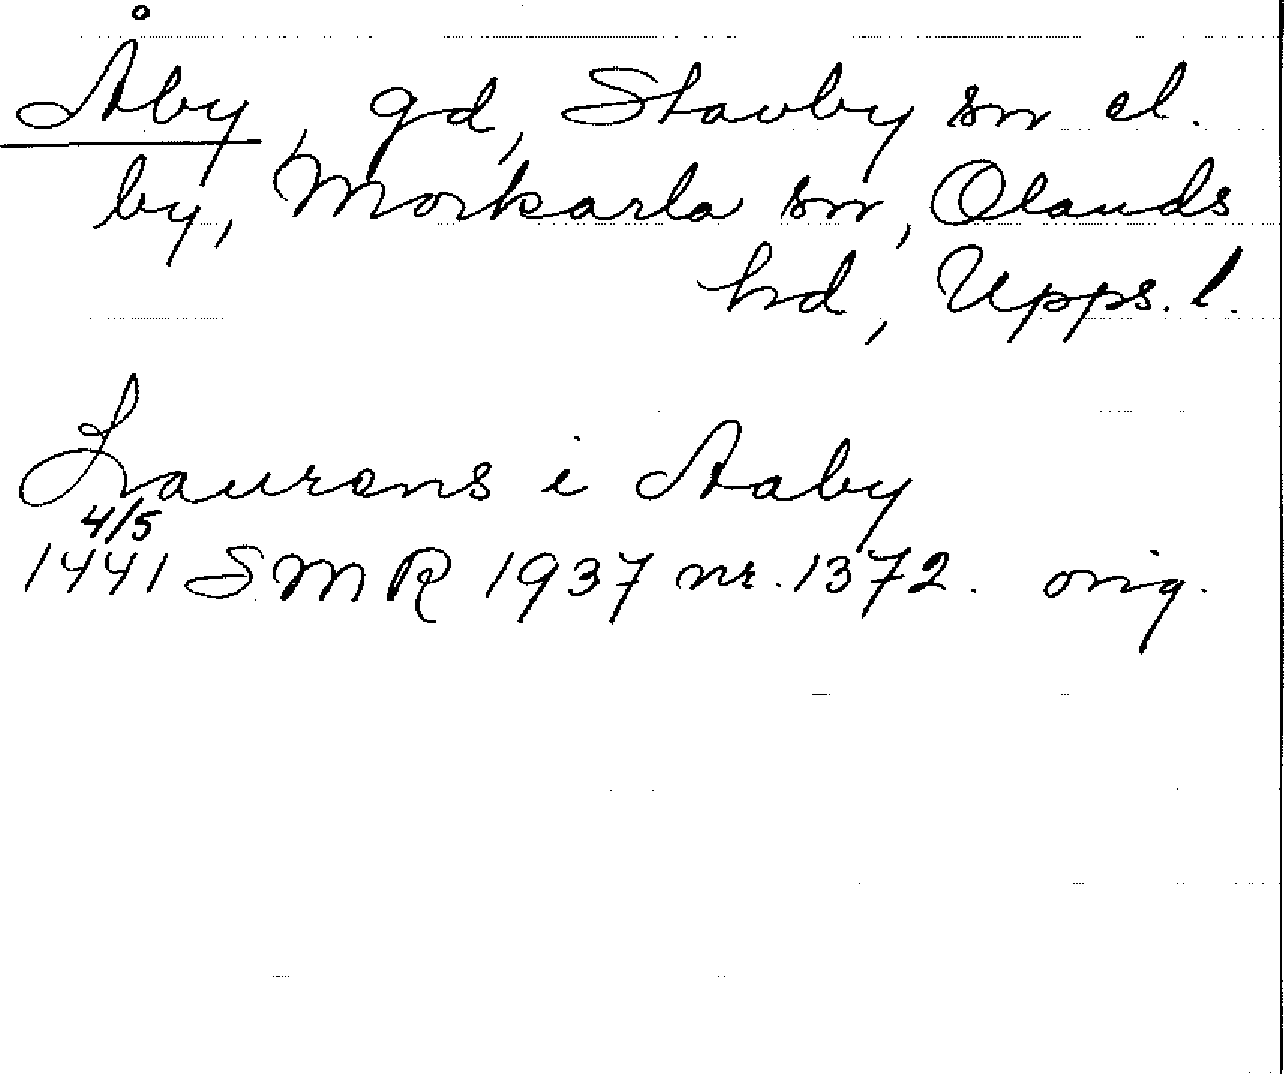 Åby, gd, Stavby sn el.
by, Morkarla sn, Olands
hd, Upps. l.
Laurens i Aaby
4/5
1441 SMR 1937 nr. 1372. orig.